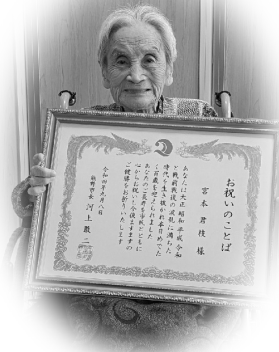 お祝いのことば
宮本 君枝 様
あなたは大正 昭和 平成 令和
と戦前戦後の波乱に満ちた
時代を生き抜かれ本日めでた
く百歳を迎えられました
あなたのご長寿を市民とともに
心からお祝いし今後ますますの
ご健勝をお祈りいたします
令和四年九月八日
熊野市長 河上敢二